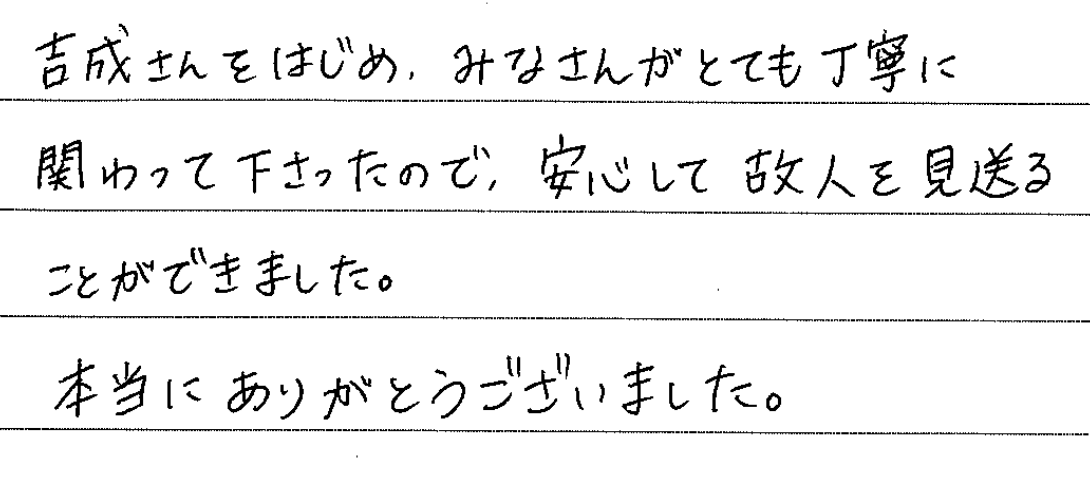 吉成さんをはじめ、みなさんがとても丁寧に
関わって下さったので、安心して故人を見送る
ことができました。
本当にありがとうございました。